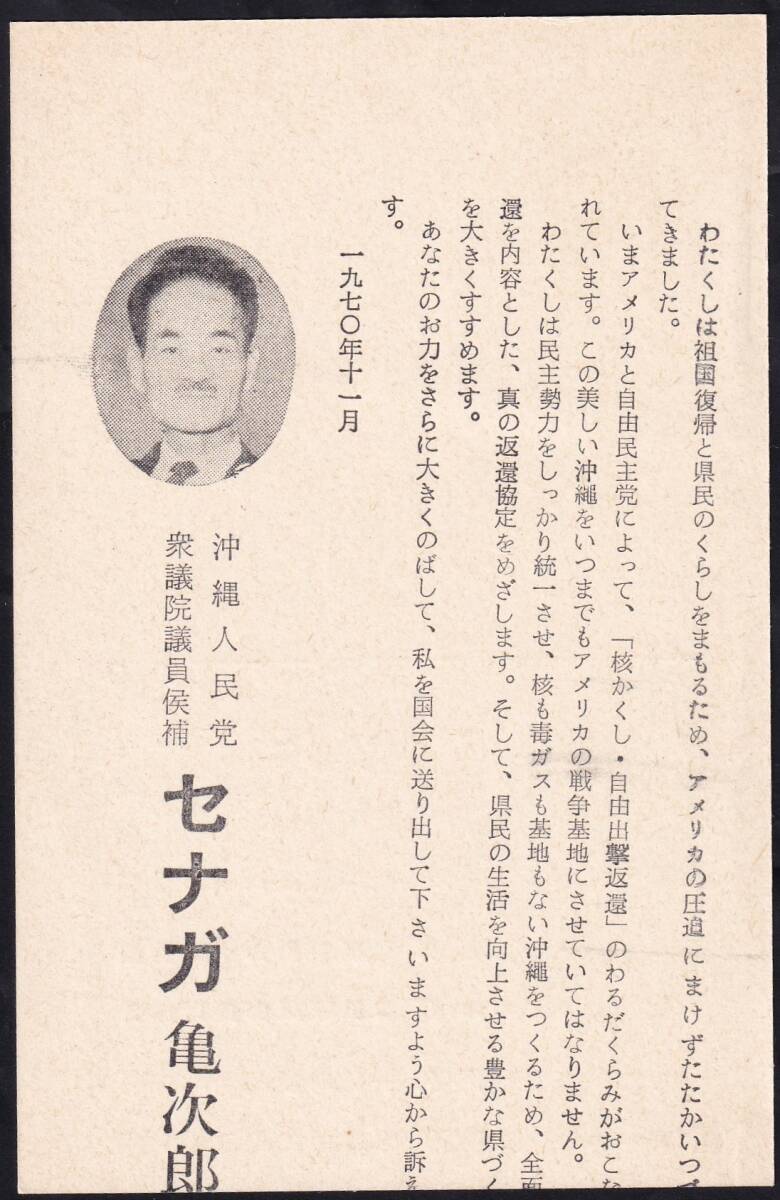 わたくしは祖国復帰と県民のくらしをまもるため、アメリカの圧迫にまけずたたかいつづ
てきました。
いまアメリカと自由民主党によって、「核かくし・自由出撃返還」のわるだくらみがおこな
れています。この美しい沖縄をいつまでもアメリカの戦争基地にさせていてはなりません。
わたくしは民主勢力をしっかり統一させ、核も毒ガスも基地もない沖縄をつくるため、全面
還を内容とした、真の返還協定をめざします。そして、県民の生活を向上させる豊かな県づく
を大きくすすめます。
あなたのお力をさらに大きくのばして、私を国会に送り出して下さいますよう心から訴え
す。
一九七〇年十一月
沖縄人民党
衆議院議員侯補
セナガ亀次郎